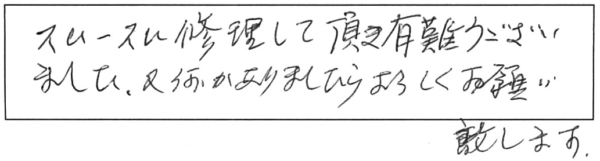 スムースに修理して頂き有難うござい
ました。又何かありましたらよろしくお願い
致します。